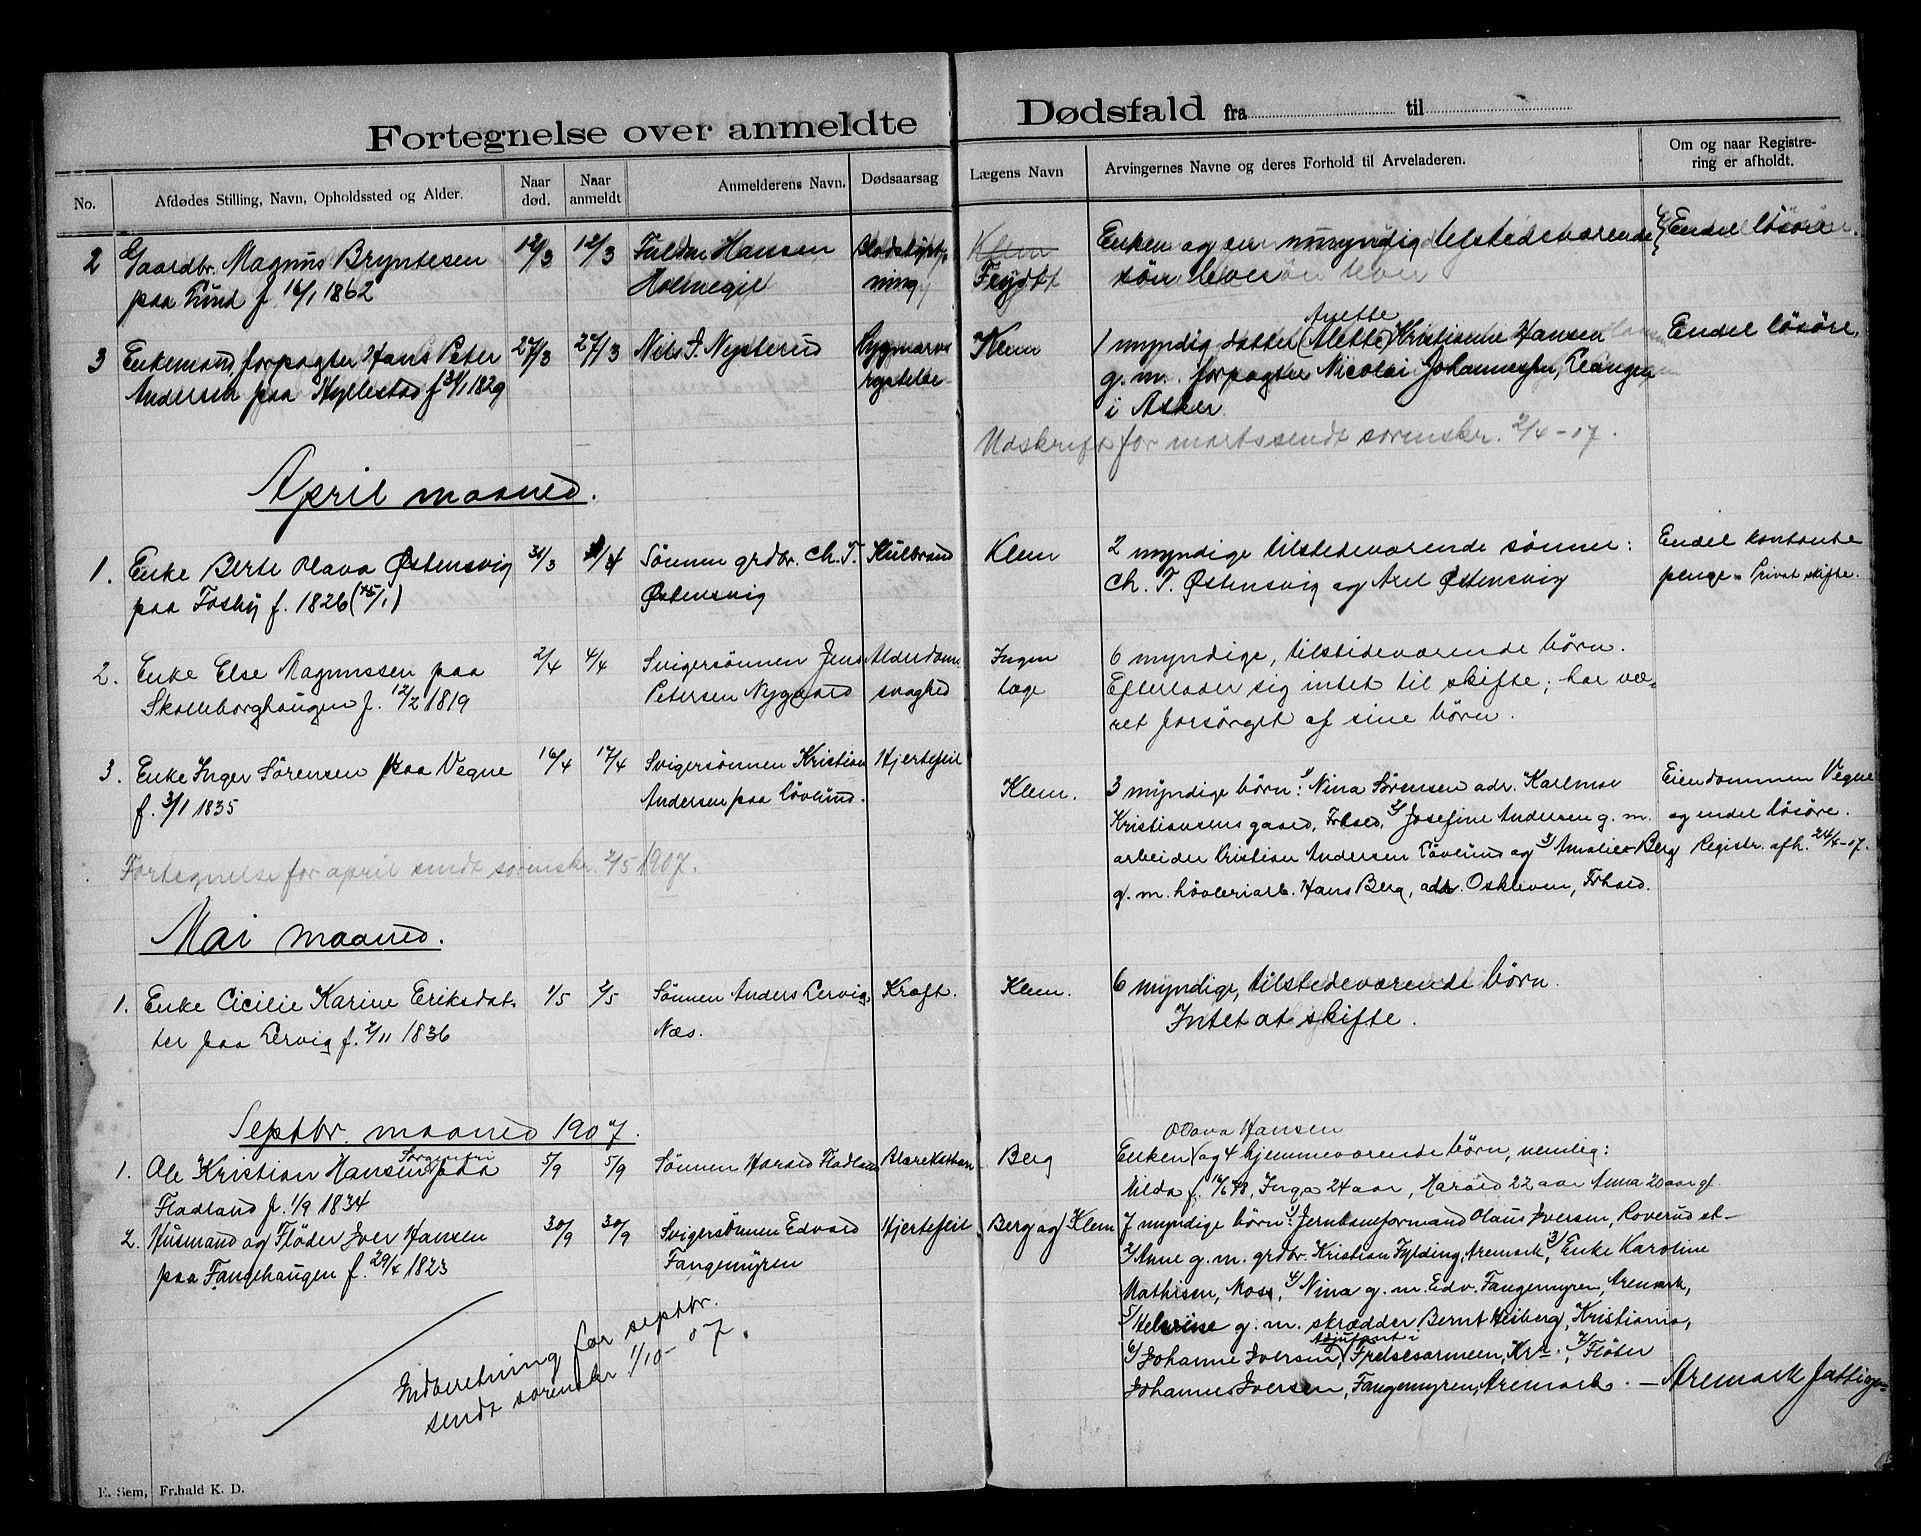 Fortegnelse over anmeldte Dødsfald fra til
No.
Afdødes Stilling, Navn, Opholdssted og Alder.
Naar død.
Naar anmeldt
Anmelderens Navn.
Dødsaarsag
Lægens Navn
Arvingernes Navne og deres Forhold til Arveladeren.
Om og naar Registre-
ring er afholdt.
2 Gaardbr. Magnus Bryntesen
paa Lund f. 16/1 1862
12/3
12/3
Hansen
Holmegil
ning
Klem
Frydtt
Enken og en umyndig tilstedeværende
søn lever
Endel løsøre
3 Enkemand, forpagter Hans Peter
Andersen paa Hyllestad f. 1829
27/3
27/3
Nils J. Nysterud
rystelse
Klem
Anette
1 myndig datter (Alette) Kristine Hansen
g. m. forpagter Nicolai Johannessen,
i Asker
Endel løsøre.
Udskrift for marts sendt sorenskr. 2/4-07.
April maaned.
1. Enke Berte Olava Østensvig
paa Fosby f. 1826
31/3
Sønnen grdbr. Ch. T.
Østensvig
Kulbrand
Klem
2 myndige tilstedeværende sønner:
Ch. T. Østensvig og Axel Østensvig
Endel kontante
penge. Privat skifte.
2. Enke Else Magnussen paa
Skolleborghaugen f. 12/2 1819
2/4
4/4
Svigersønnen Jens
Petersen Nygaard
Alderdoms
svaghed
Ingen
læge
6 myndige, tilstedeværende børn.
Efterlader sig intet til skifte; har væ-
ret forsørget af sine børn.
3. Enke Inger Sørensen paa Vegne
f. 3/1 1835
16/4
17/4
Svigersønnen Kristian
Andersen paa Løvlund.
Hjertefeil
Klem.
3 myndige børn: 1/ Nina Sørensen adr.
Kristiansens gaard, Frhald, 2/ Josefine Andersen g. m.
arbeider Kristian Andersen Løvlund og 3/ Amalie Berg
g. m. høvleriarb. Hans Berg, adr. Oskleven, Frhald.
Eiendommen Vegne
og endel løsøre.
Registr. afh. 24/4-07.
Fortegnelse for april sendt sorenskr. 2/5 1907.
Mai maaned.
1. Enke Cicilie Karine Eriksdat-
ter paa Lervig f. 2/11 1836
1/5
2/5
Sønnen Anders Lervig
Næs.
Kræft.
Klem.
6 myndige, tilstedeværende børn.
Intet at skifte.
Septbr. maaned 1907.
1. Ole Kristian Hansen Sorgenfri paa
Fladland f. 1/9 1834
5/9
5/9
Sønnen Harald Fladland
Blærekatharr
Berg
Olava Hansen
Enken og 4 hjemmeværende børn, nemlig:
Hilda f. 16/6 78, Inga 24 aar, Harald 22 aar Anna 20 aar gl.
2. Husmand og Fløder Iver Hansen
paa Fangehaugen f. 29/4 1823
30/9
30/9
Svigersønnen Edvard
Fangemyren
Hjertefeil
Berg og Klem
7 myndige børn: 1/ Jernbaneformand Olaus Iversen, Roverud st-
2/ Anne g. m. grdbr. Kristian Fylding, Aremark, 3/ Enke Karoline
Mathisen, Moss, 4/ Nina g. m. Edv. Fangemyren, Aremark,
5/ Helerine g. m. skrædder Bernt Heiberg, Kristiania,
6/ Johanne Iversen, Adjutant i Frelsesarmeen, Kra., 7/ Fløter
Johannes Iversen, Fangemyren, Aremark. — Aremark
Indberetning for septbr.
sendt sorenskr 1/10-07.
E. Sem, Fr.hald K. D.